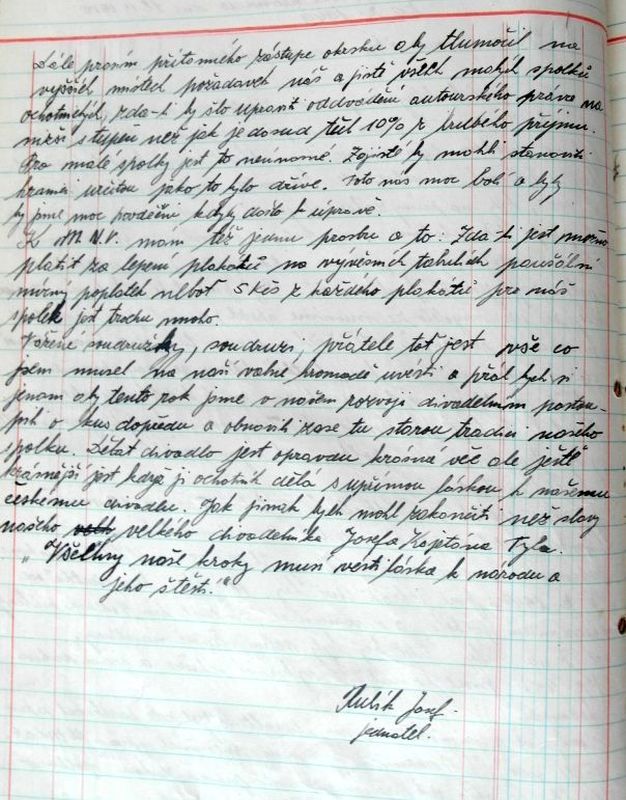 Dále prosím přítomného zástupce okrsku aby tlumočil na
vyšších místech požadavek náš a jistě všech malých spolků
ochotnických, zda-li by šlo upravit odvádění autorského práva na
nižší stupeň než jak je dosud těch 10% z hrubého příjmu.
Pro malé spolky jest to neúnosné. Zajisté by mohli stanoviti
hranici určitou jako to bylo dříve. Toto nás moc bolí a byli
by jsme moc povděčni kdyby došlo k úpravě.
K M.N.V. mám též jednu prosbu a to: Zda-li jest možno
platit za lepení plakátů na vývěsních tabulích paušální
mírný poplatek neboť 5 Kčs z každého plakátů pro náš
spolek jest trochu mnoho.
Vážené soudružky, soudruzi, přátele toť jest vše co
jsem musel na naší valné hromadě uvésti a přál bych si
jenom aby tento rok jsme v našem rozvoji divadelním postou-
pili o kus dopředu a obnovili zase tu starou tradici našeho
spolku. Dělat divadlo jest opravdu krásná věc ale ještě
krásnější jest když ji ochotník dělá s upřímnou láskou k našemu
českému divadlu. Jak jinak bych mohl zakončiti než slovy
našeho velkého divadelníka Josefa Kajetána Tyla.
„Všechny naše kroky musí vésti láska k národu a
jeho štěstí."
Josef
jednatel.